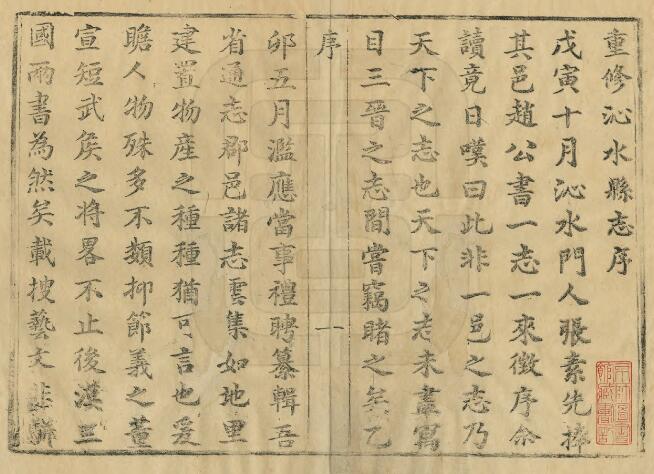 重修沁水縣志序
戊寅十月沁水門人張素先捧
其邑趙公書一志一來徵序余
讀竟日嘆曰此非一邑之志乃
天下之志也天下之志未韋寓
目三晉之志間嘗竊睹之矣乙
序
一
卯五月濫應當事禮聘纂輯吾
省通志郡邑諸志雲集如地里
建置物產之種種猶可言也爰
瞻人物殊多不類抑節義之董
宣短武矦之將畧不止後漢三
國兩書為然矣載搜藝文非